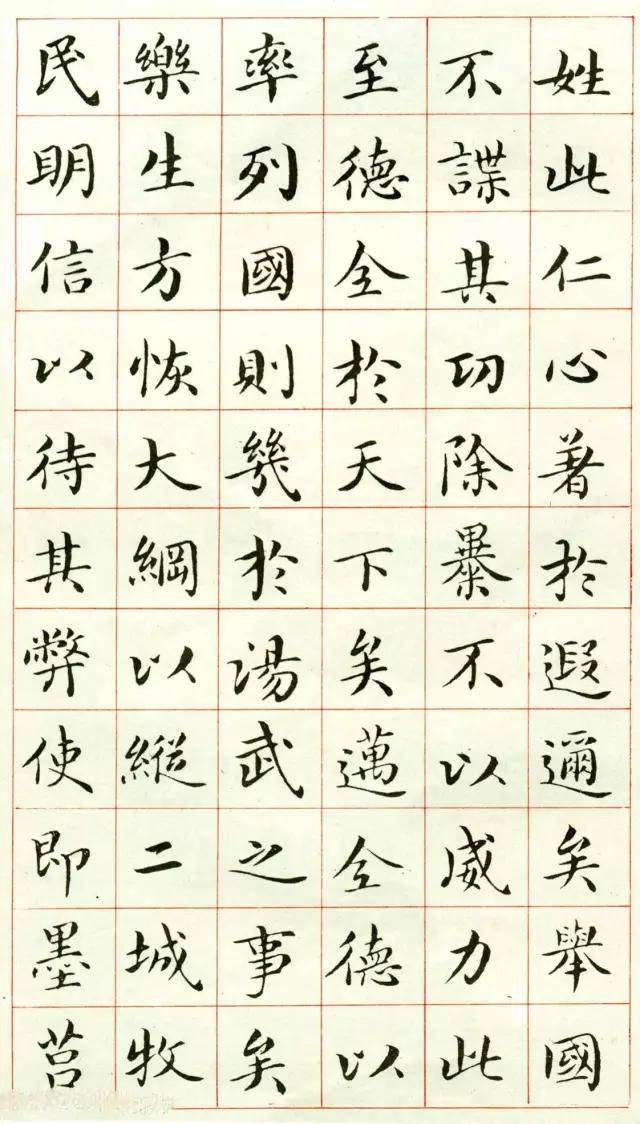 姓此仁心著於遐邇矣舉國
不諜其功除暴不以威力此
至德全於天下矣邁全德以
率列國則幾於湯武之事矣
樂生方恢大綱以縱二城牧
民明信以待其弊使即墨莒